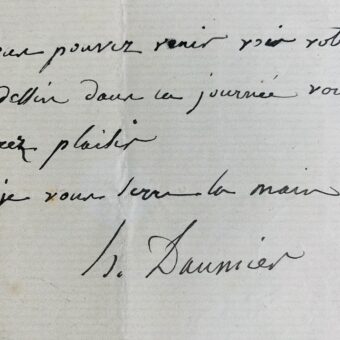 pouvez venir voir vot
dessin dans la journée vou
ez plaisir
je vous serre la main
h. Daumier